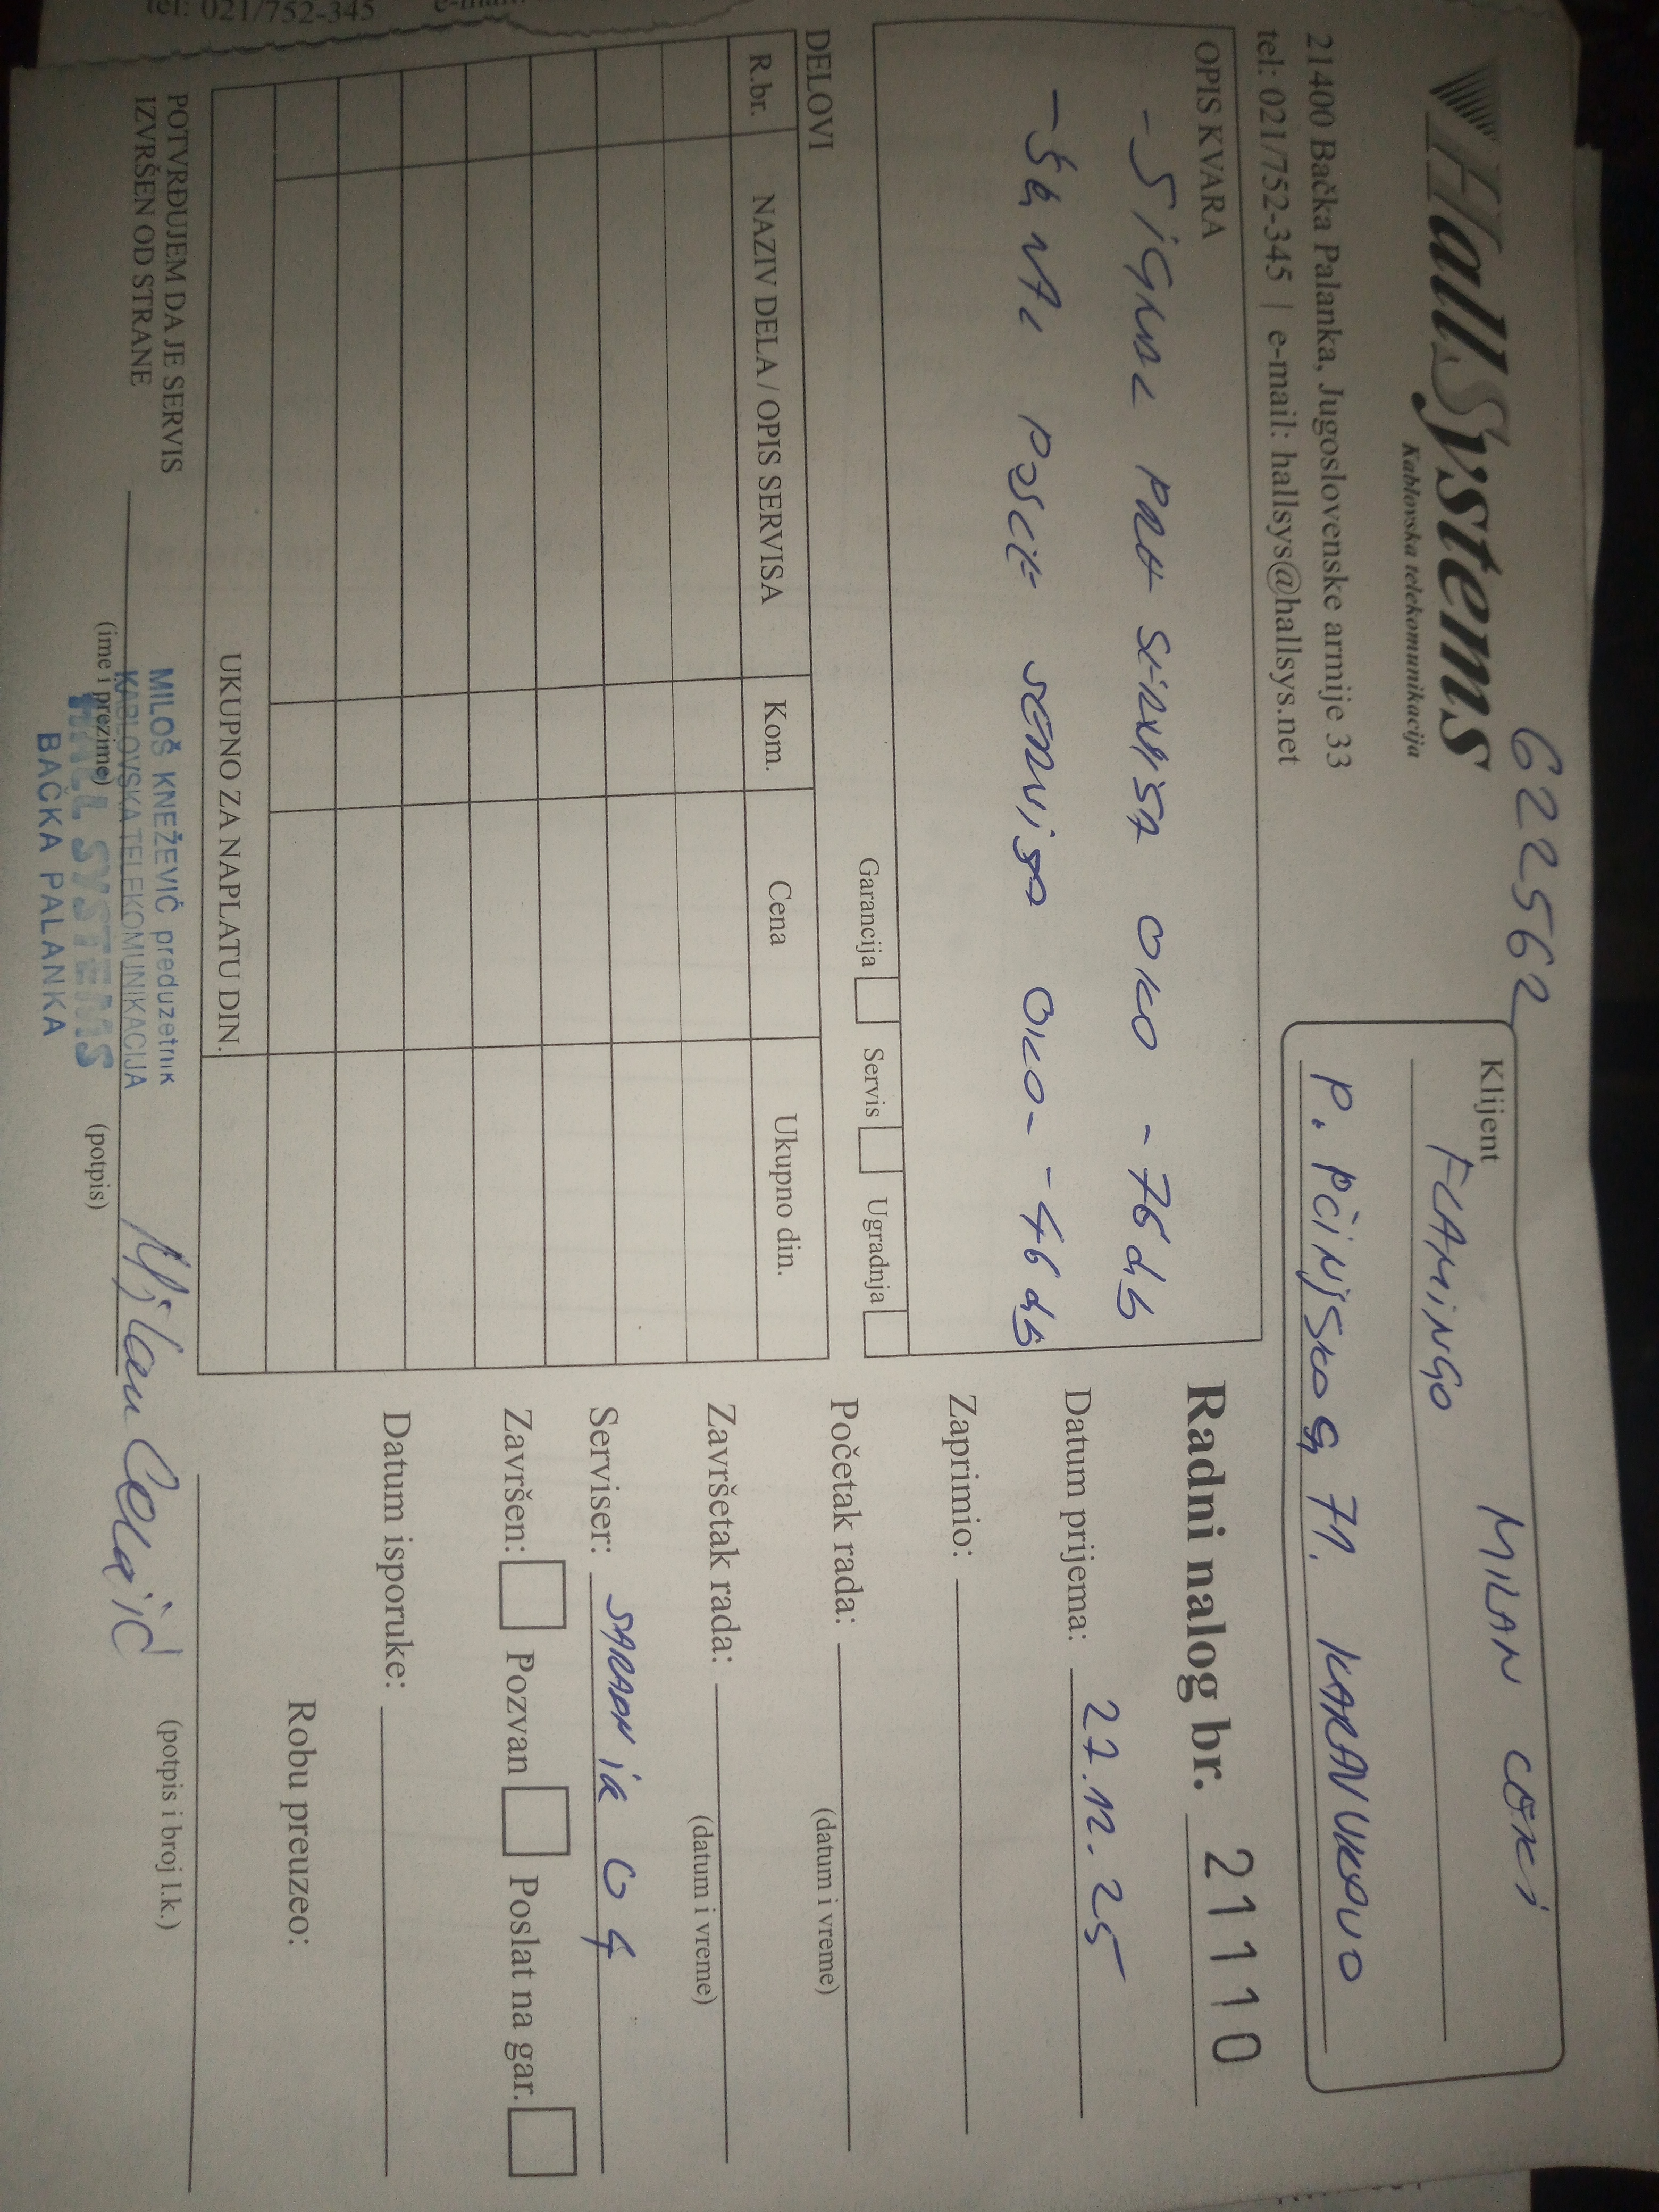 tel: 021/752-345
622562
HallSystems
Kablovska telekomunikacija
21400 Bačka Palanka, Jugoslovenske armije 33
tel: 021/752-345 | e-mail: hallsys@hallsys.net
Klijent MILAN
FLAMINGO
P. PČINJSKOG 71. KARAVUKOVO
OPIS KVARA
- SIGNAL PRE SERVISA OKO - 76 db
POSLE SERVISA OKO - - 46 db
Garancija Servis Ugradnja
Radni nalog br. 21110
Datum prijema: 27.12.25
Zaprimio:
Početak rada:
(datum i vreme)
Završetak rada:
(datum i vreme)
Serviser: SARADNIK 04
Završen: Pozvan Poslat na gar.
Datum isporuke:
Robu preuzeo:
(potpis i broj l.k.)
DELOVI
R.br. NAZIV DELA / OPIS SERVISA Kom. Cena Ukupno din.
UKUPNO ZA NAPLATU DIN.
POTVRĐUJEM DA JE SERVIS
IZVRŠEN OD STRANE
(ime i prezime) (potpis)
MILOŠ KNEŽEVIĆ preduzetnik
KABLOVSKA TELEKOMUNIKACIJA
HALL SYSTEMS
BAČKA PALANKA
Milan